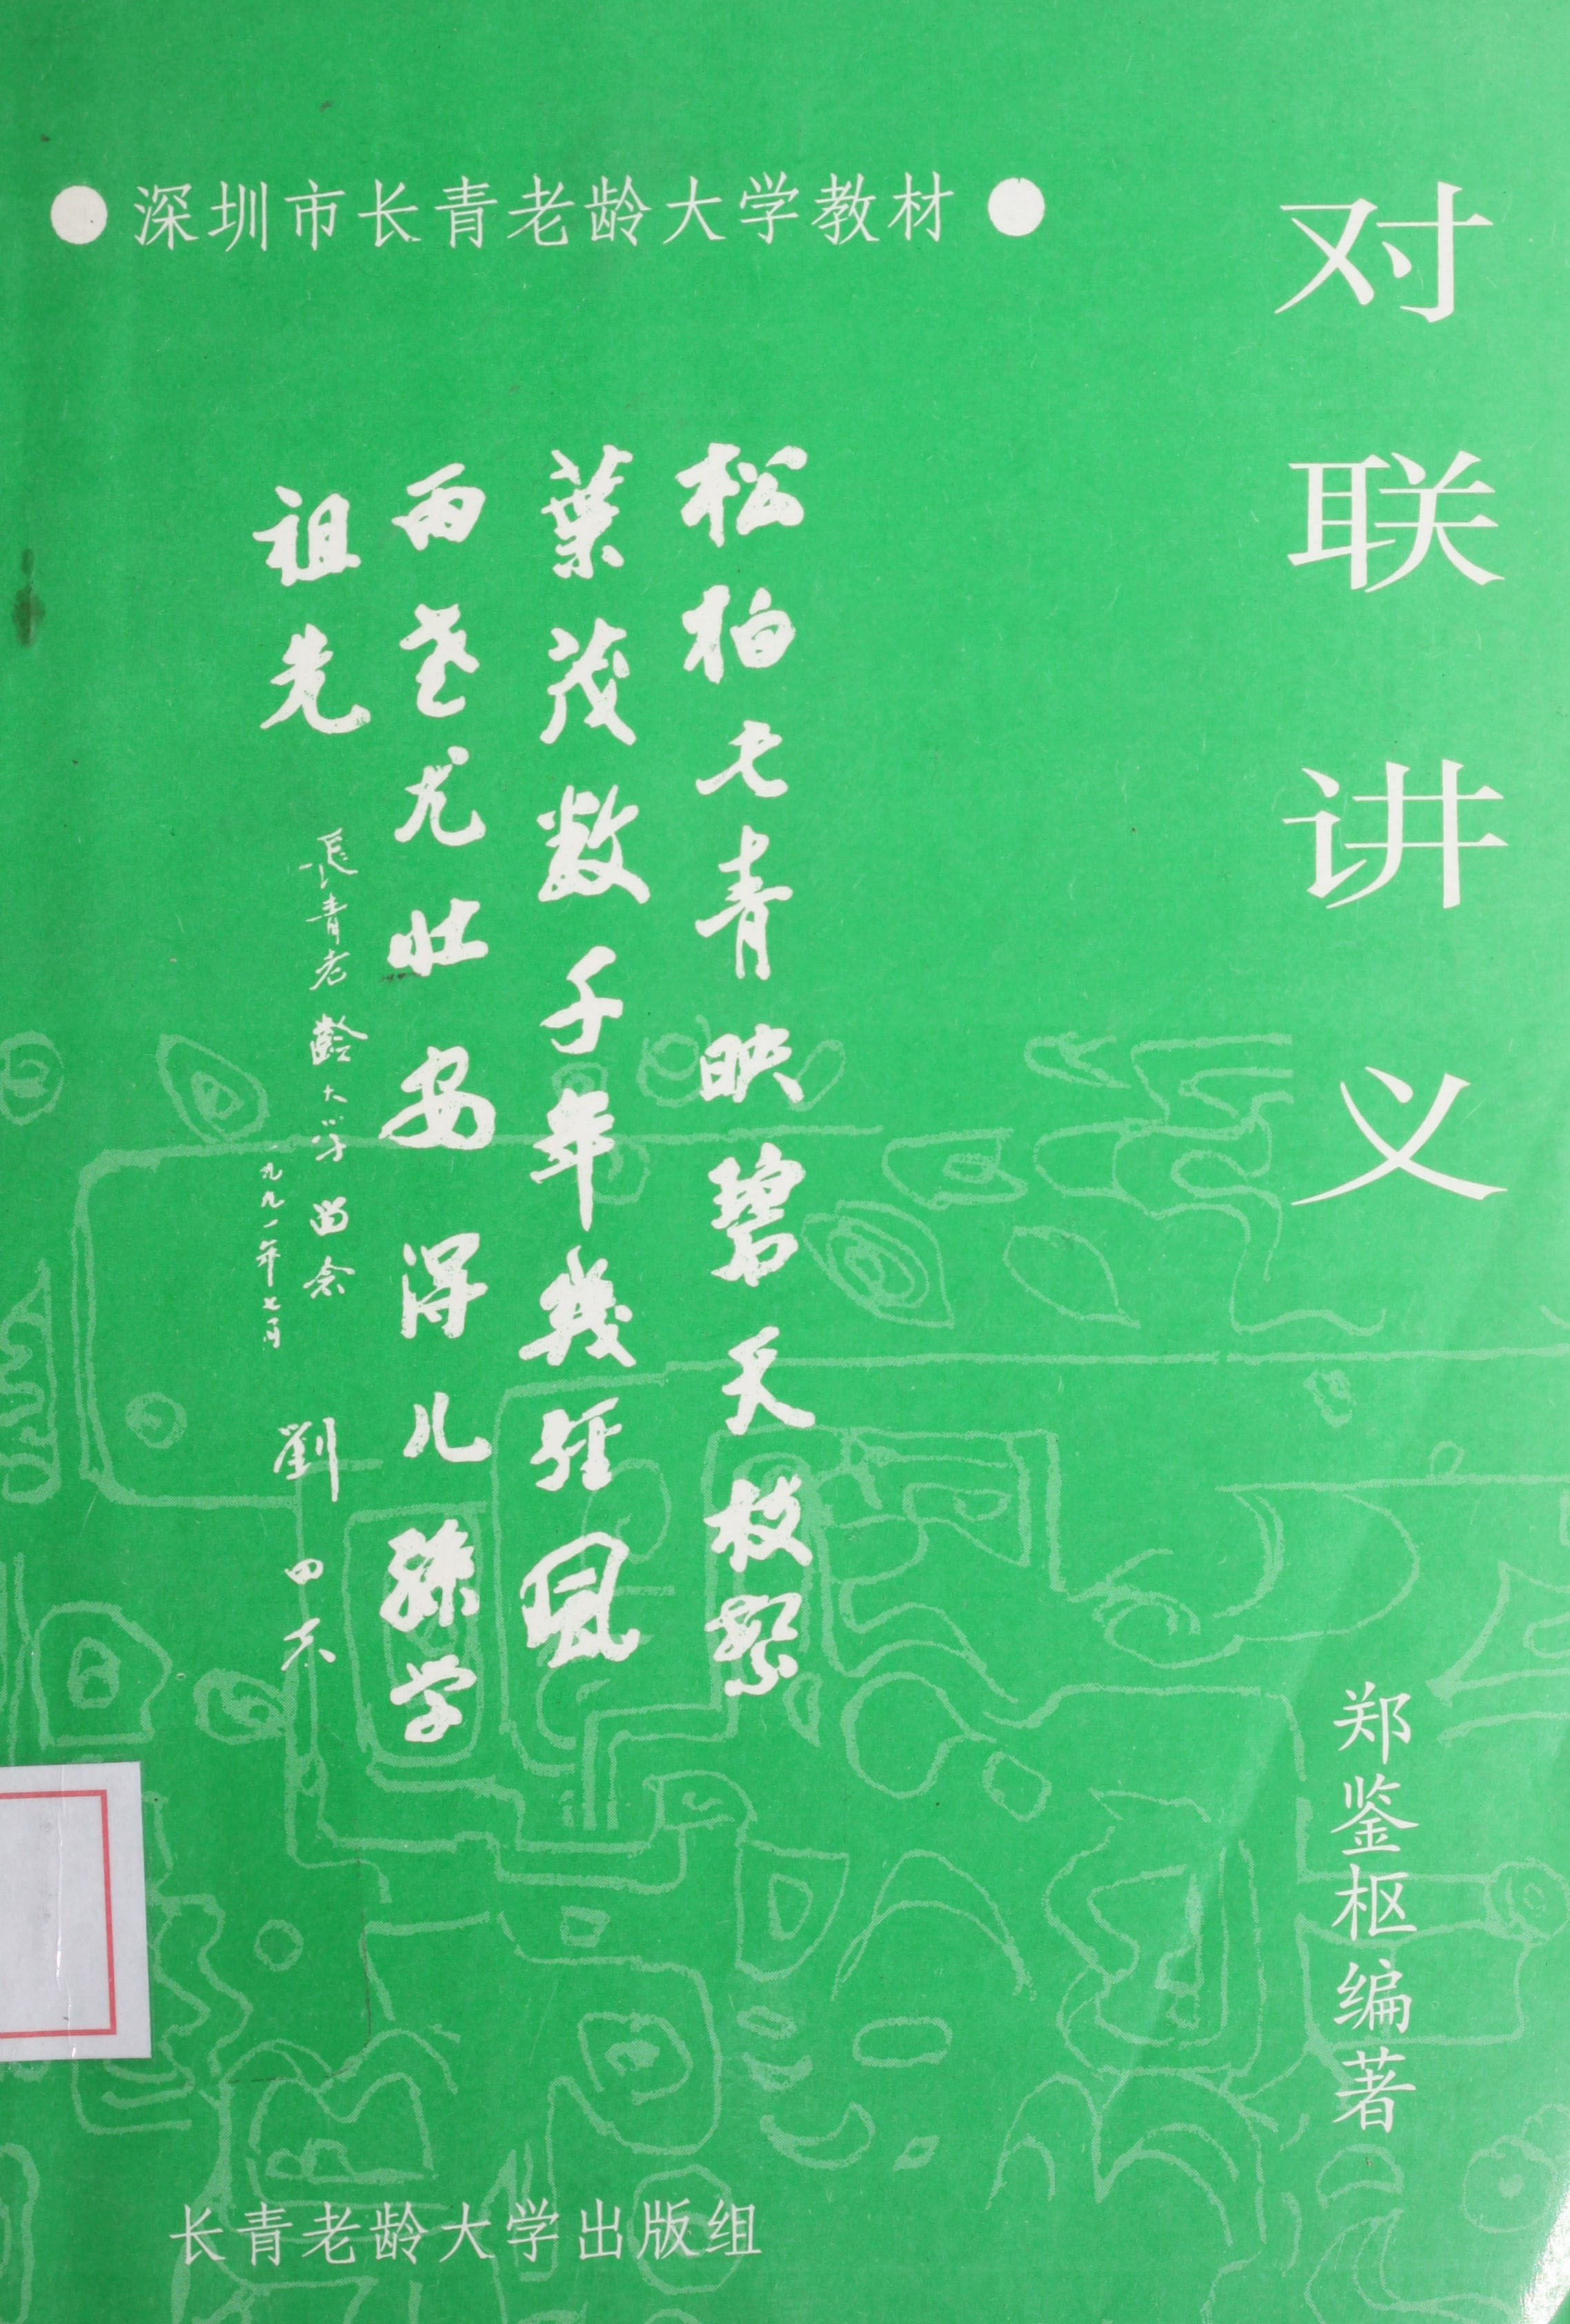 深圳市长青老龄大学教材
对联讲义
松柏长青映碧天枝繁
葉茂数千年幾经風
雨老尤壮安得儿孫学
祖先
長青老齡大学留念
一九九一年七月
劉田夫
郑鉴枢编著
长青老龄大学出版组